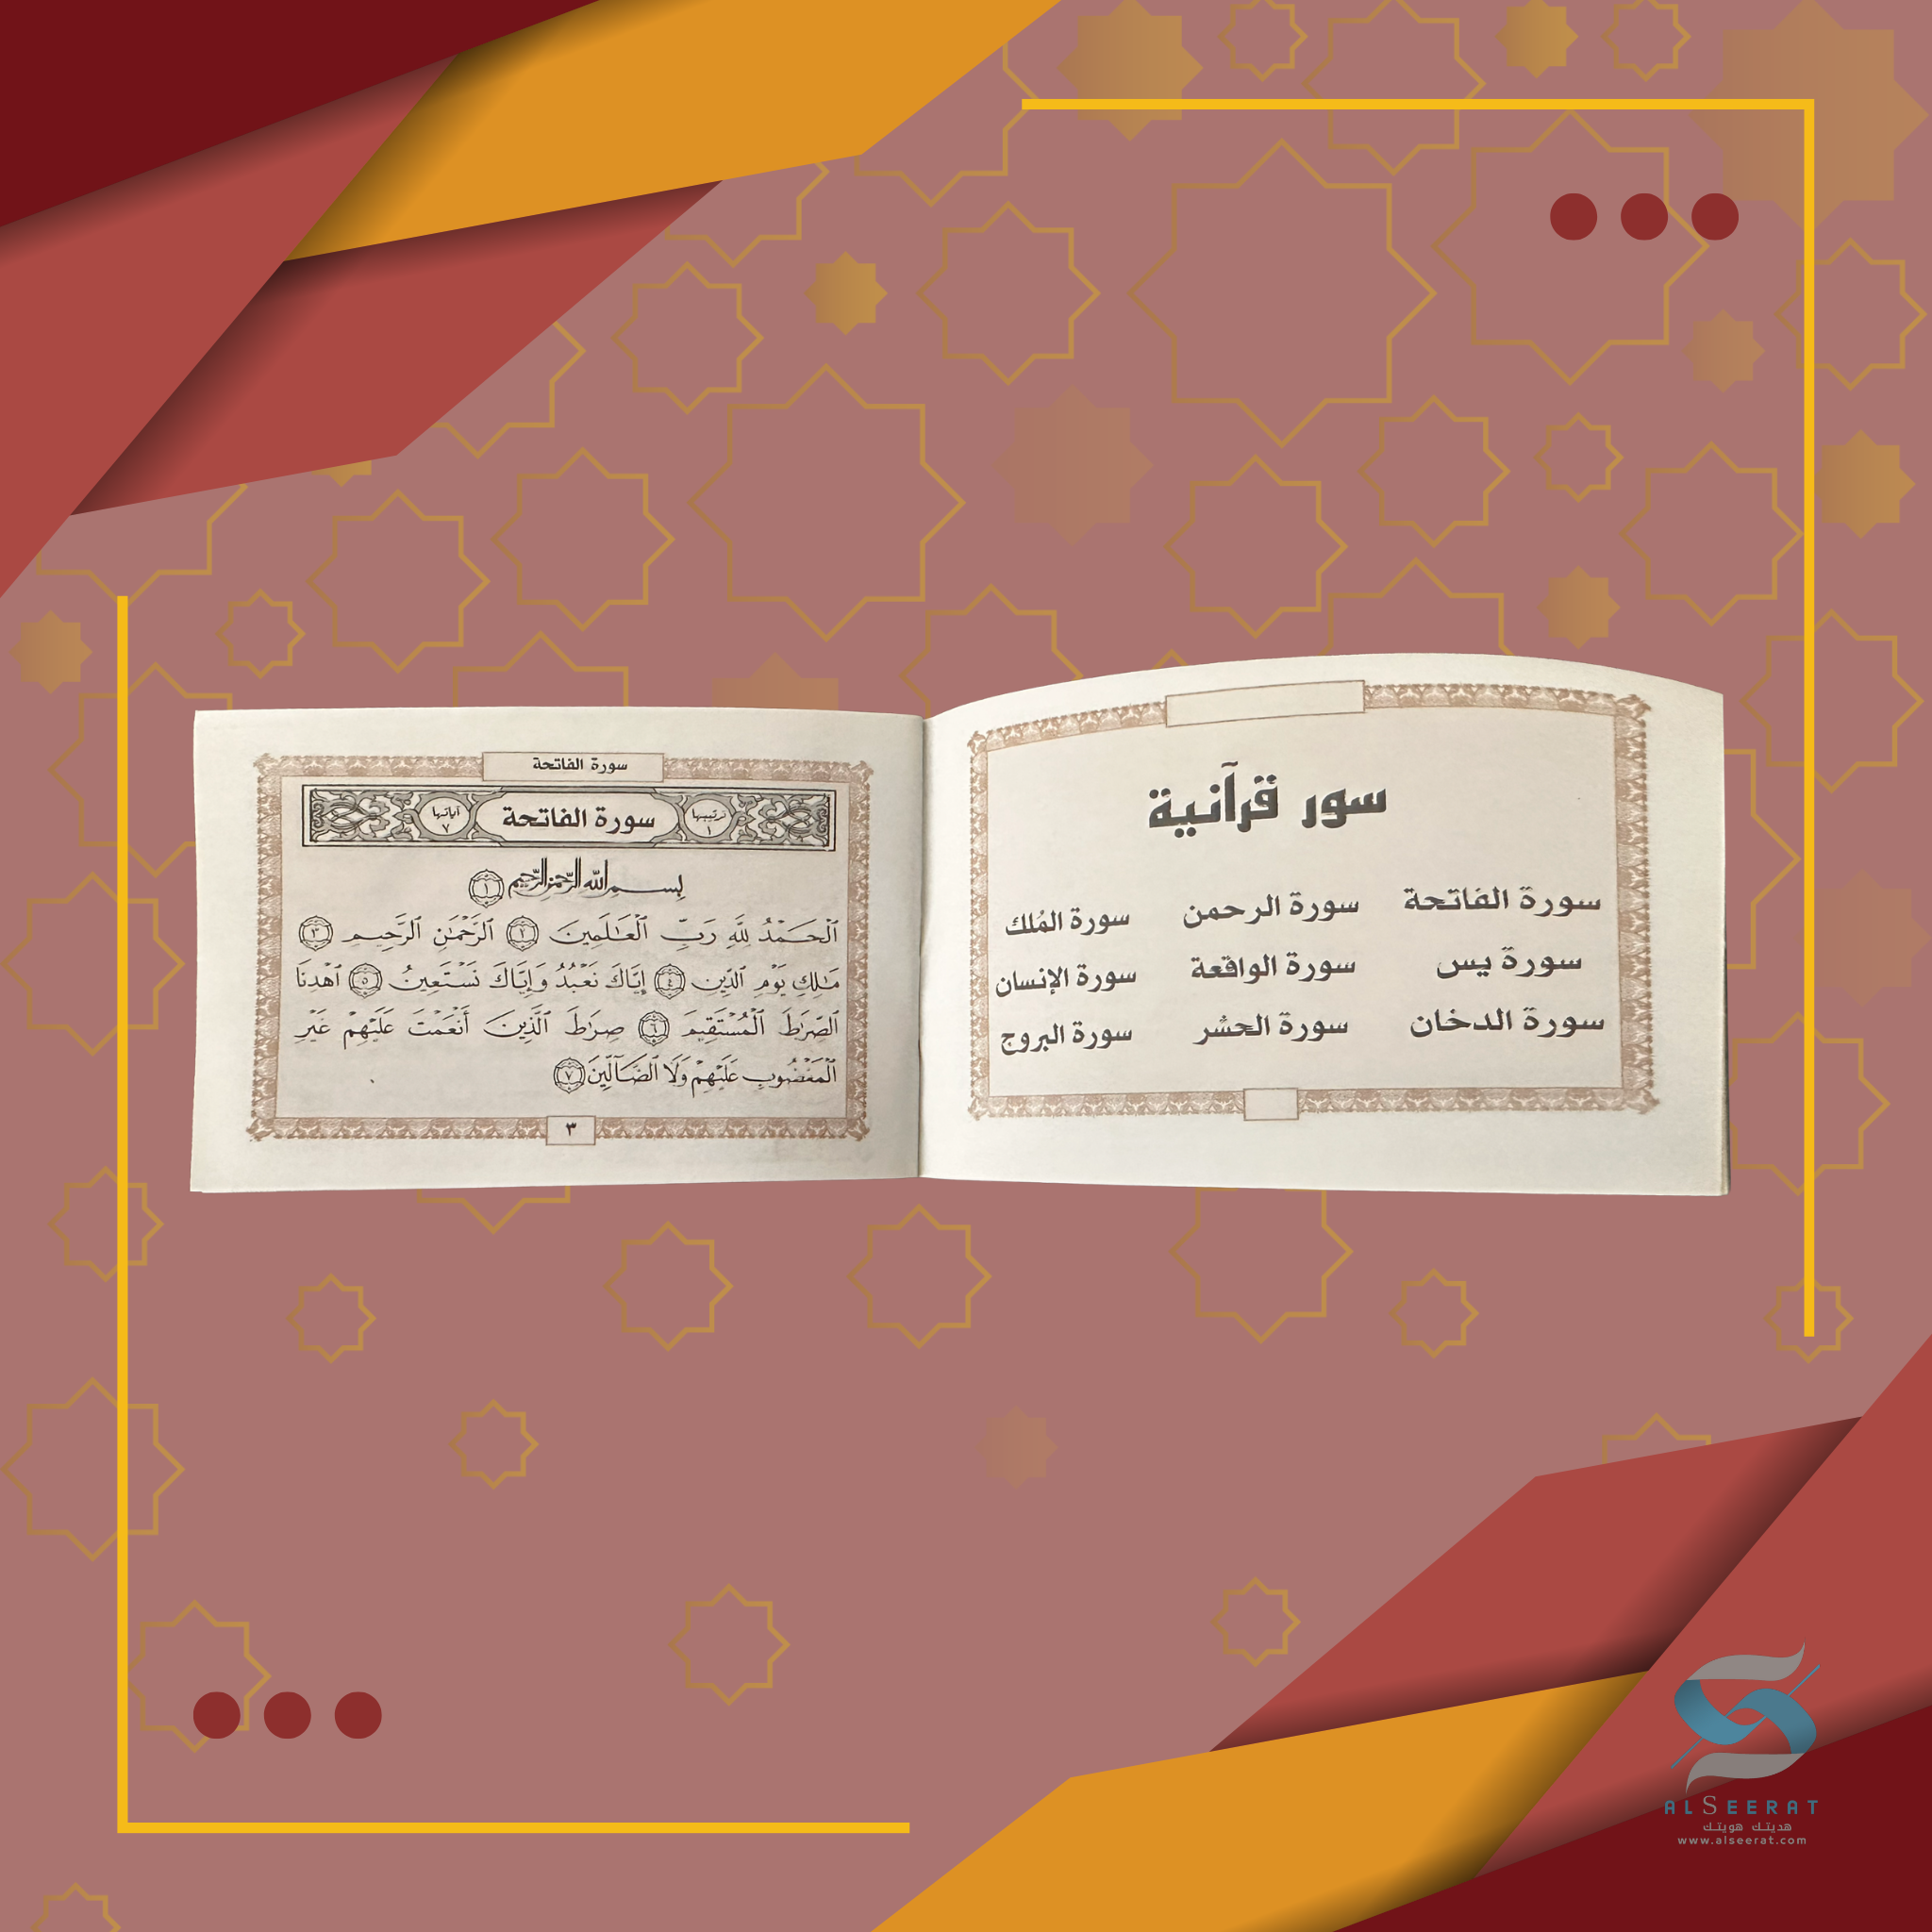 سور قرآنية
سورة الفاتحة سورة الرحمن سورة المُلك
سورة يس سورة الواقعة سورة الإنسان
سورة الدخان سورة الحشر سورة البروج
سورة الفاتحة
ترتيبها ١ سورة الفاتحة آياتها ٧
بِسْمِ ٱللَّهِ ٱلرَّحْمَٰنِ ٱلرَّحِيمِ ١
ٱلْحَمْدُ لِلَّهِ رَبِّ ٱلْعَٰلَمِينَ ٢ ٱلرَّحْمَٰنِ ٱلرَّحِيمِ ٣
مَٰلِكِ يَوْمِ ٱلدِّينِ ٤ إِيَّاكَ نَعْبُدُ وَإِيَّاكَ نَسْتَعِينُ ٥ ٱهْدِنَا
ٱلصِّرَٰطَ ٱلْمُسْتَقِيمَ ٦ صِرَٰطَ ٱلَّذِينَ أَنْعَمْتَ عَلَيْهِمْ غَيْرِ
ٱلْمَغْضُوبِ عَلَيْهِمْ وَلَا ٱلضَّآلِّينَ ٧
٣
ALSEERAT
هديتك هويتك
www.alseerat.com